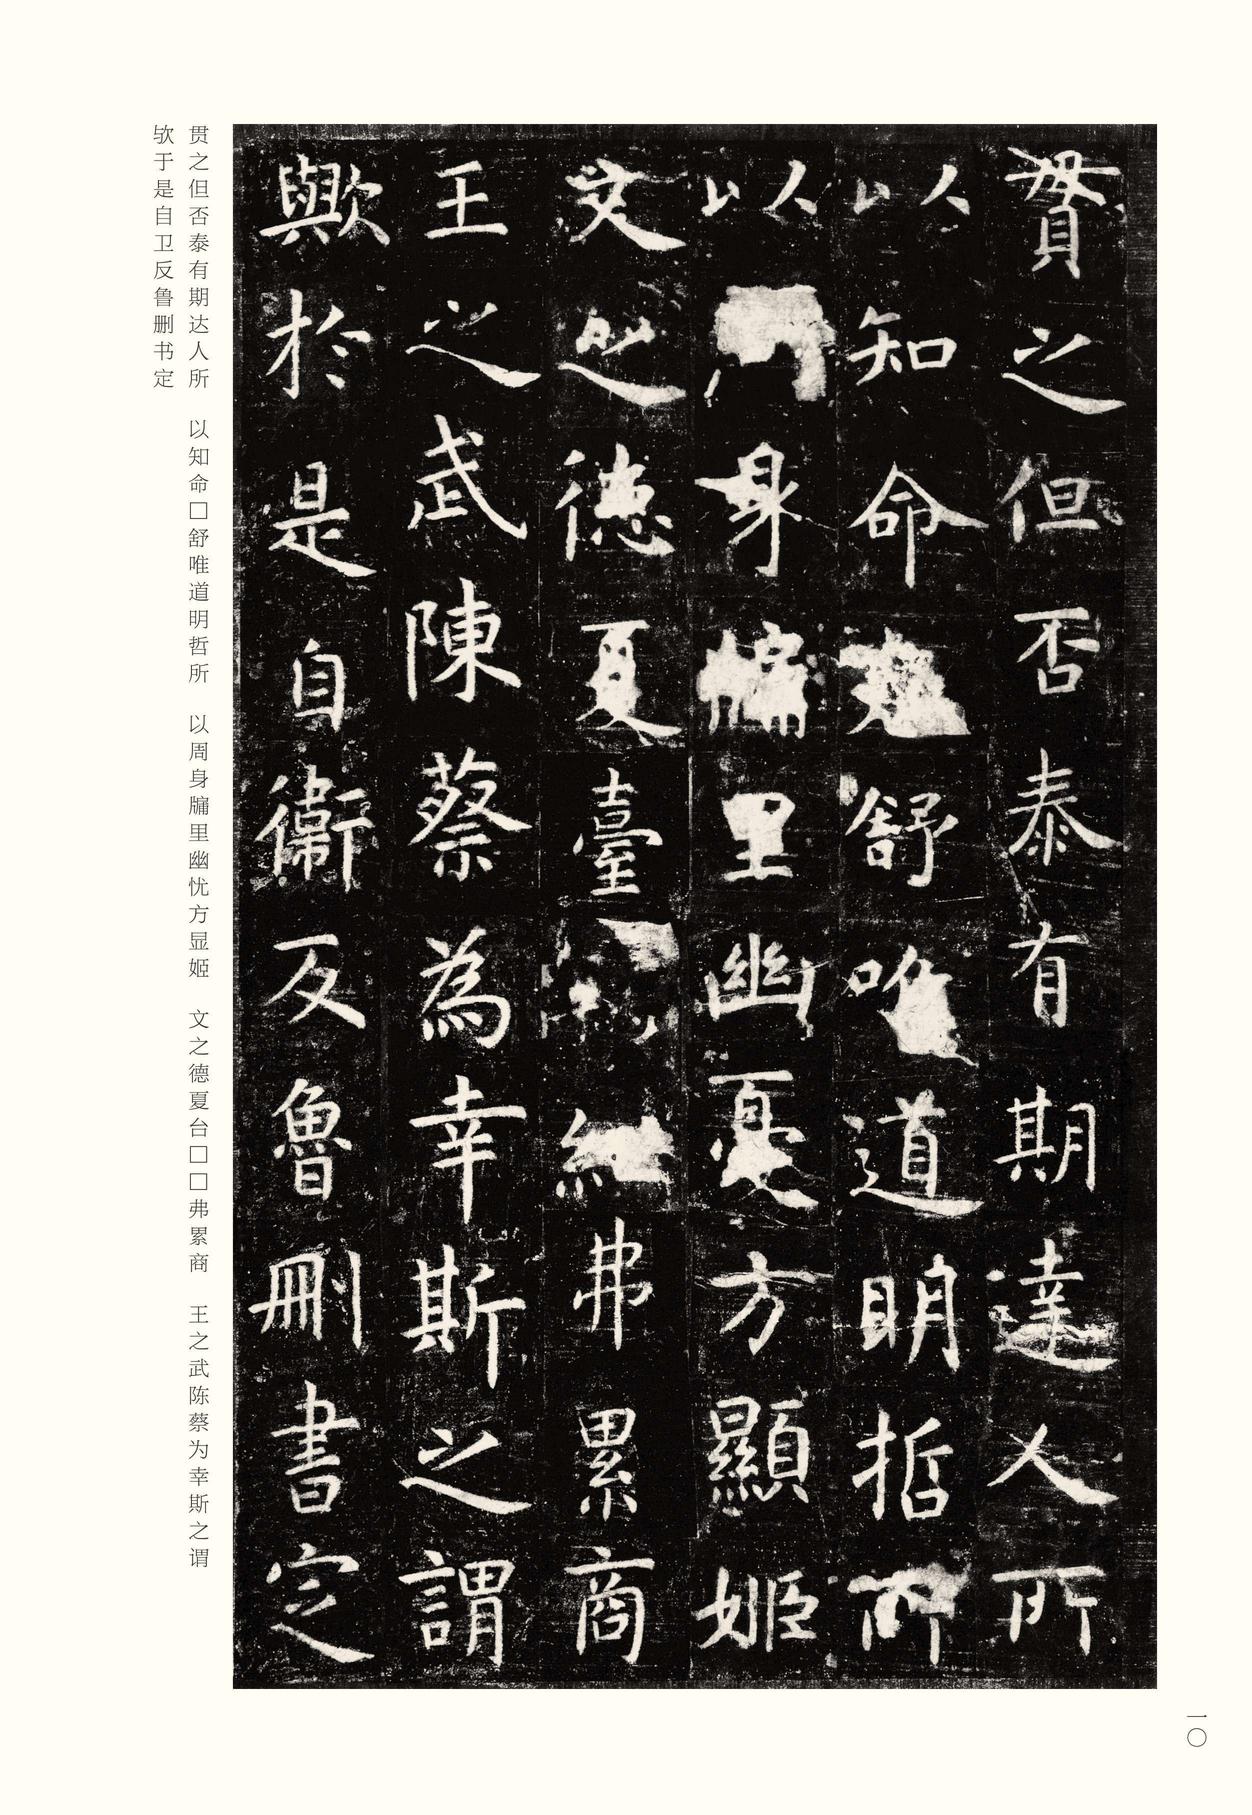 貫之但否泰有期達人所
以知命舒唯道明哲所
以身牖里幽憂方顯姬
文之德夏臺弗累商
王之武陳蔡為幸斯之謂
歟於是自衛反魯刪書定
贯之但否泰有期达人所　以知命□舒唯道明哲所　以周身牖里幽忧方显姬　文之德夏台□□弗累商　王之武陈蔡为幸斯之谓
欤于是自卫反鲁删书定
一〇